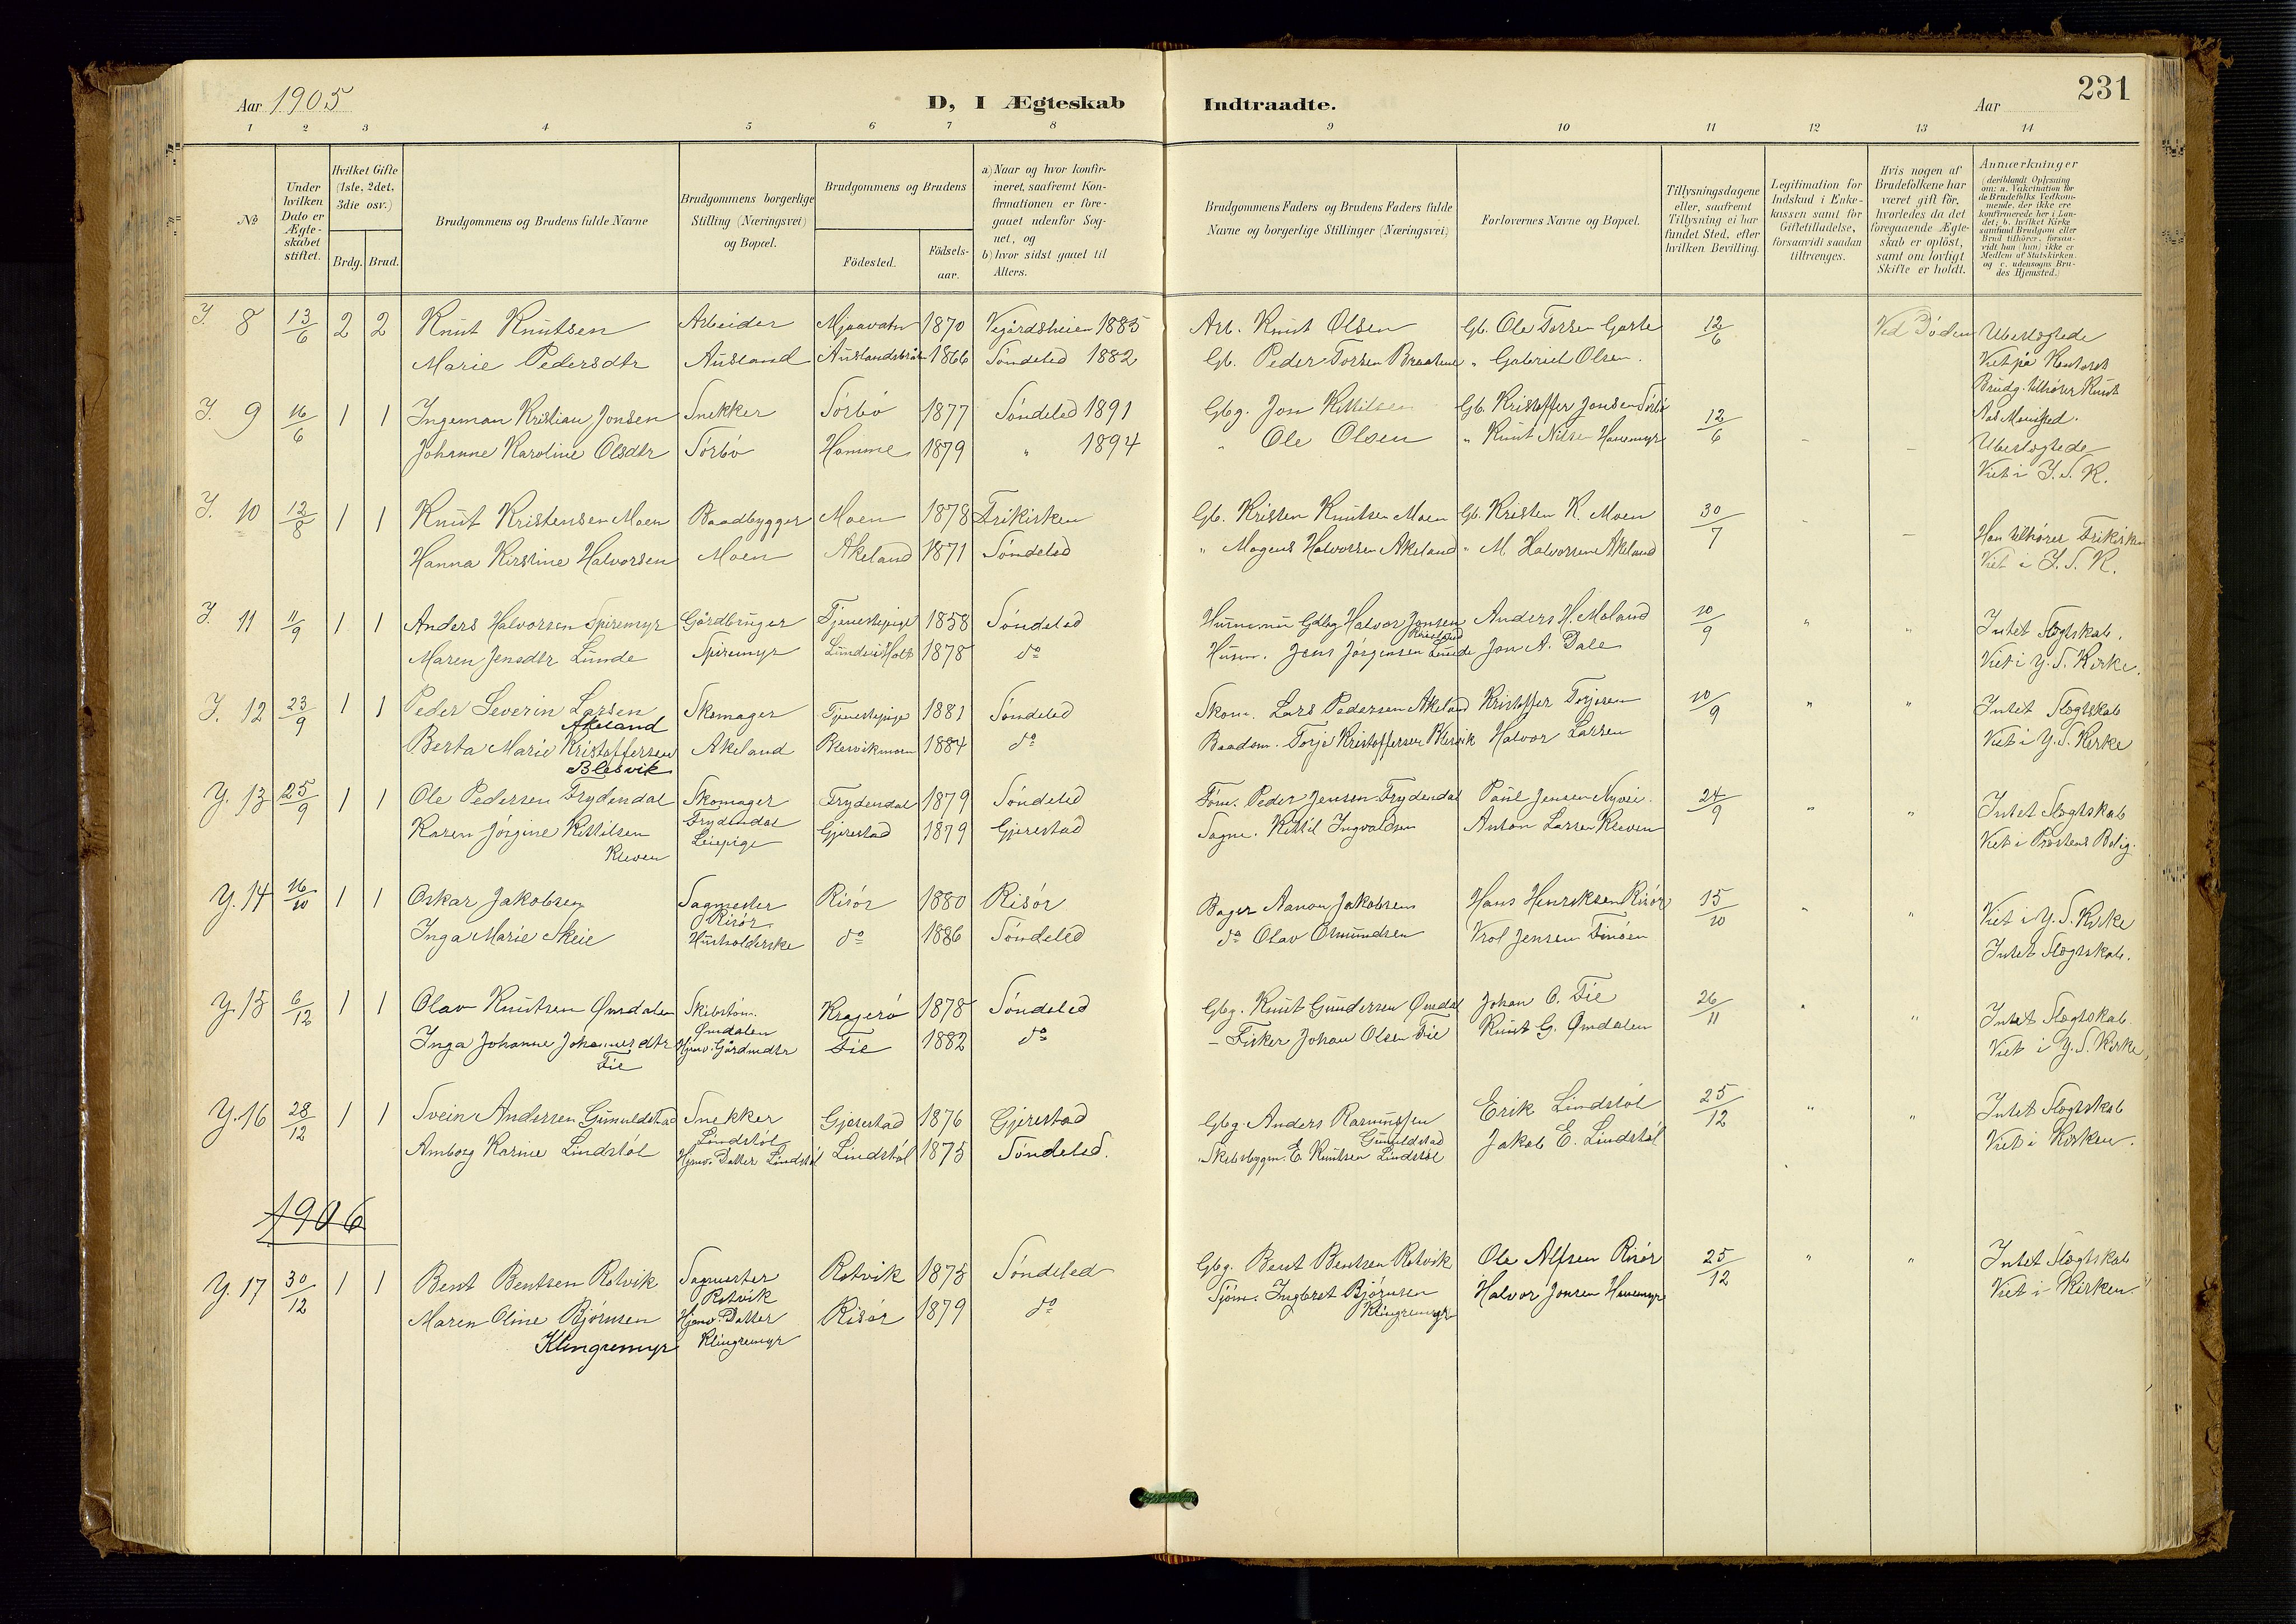 Aar 1905
D, I Ægteskab Indtraadte.
Aar
231
1 2 3 4 5 6 7 8 9 10 11 12 13 14
No
Under hvilken Dato er Ægteskabet stiftet.
Hvilket Gifte (1ste, 2det, 3die osv.)
Brdg. Brud.
Brudgommens og Brudens fulde Navne
Brudgommens borgerlige Stilling (Næringsvei) og Bopæl.
Brudgommens og Brudens
Födested.
Födsels-aar.
a) Naar og hvor konfirmeret, saafremt Konfirmationen er foregaaet udenfor Sognet, og
b) hvor sidst gaaet til Alters.
Brudgommens Faders og Brudens Faders fulde Navne og borgerlige Stillinger (Næringsvei)
Forlovernes Navne og Bopæl.
Tillysningsdagene eller, saafremt Tillysning ei har fundet Sted, efter hvilken Bevilling.
Legitimation for Indskud i Enkekassen samt for Giftetilladelse, forsaavidt saadan tiltrænges.
Hvis nogen af Brudefolkene har været gift för, hvorledes da det foregaaende Ægteskab er oplöst, samt om lovligt Skifte er holdt.
Anmærkninger (deriblandt Oplysning om: a. Vakcination for de Brudefolks Vedkommende, der ikke ere konfirmerede her i Landet; b. hvilket Kirkesamfund Brudgom eller Brud tilhörer, forsaavidt han (hun) ikke er Medlem af Statskirken, og c. udensogns Brudes Hjemsted.)
Y. 8 13/6 2 2 Knut Knutsen Arbeider Mjaavatn 1870 Vegårdsheien 1885 Arb. Knut Olsen Gb. Ole Torsen Garte 12/6 Ved Døden Ubeslægtede
Marie Pedersdtr Ausland Auslandsbråt 1866 Søndeled 1882 Gb. Peder Torsen Braatene " Gabriel Olsen. Viet på Kontoret
Brudg. tilhører Kunst
Y. 9 16/6 1 1 Ingeman Kristian Jonsen Snekker Sørbø 1877 Søndeled 1891 Gbg. Jon Kittilsen Gb. Kristoffer Jonsen Sørbø 12/6
Johanne Karoline Olsdtr Sørbø Hamme 1879 " 1894 " Ole Olsen " Knut Nilsen Havemyr Ubeslægtede
Viet i Y. S. K.
Y. 10 12/8 1 1 Knut Kristensen Moen Baadbygger Moen 1878 Frikirken Gb. Kristen Knutsen Moen Gb. Kristen K. Moen 30/7 Han tilhører Frikirken
Hanna Kirstine Halvorsen Moen Akeland 1871 Søndeled " Mogens Halvorsen Akeland " M. Halvorsen Akeland Viet i Y. S. K.
Y. 11 11/9 1 1 Anders Halvorsen Spiremyr Gårdbruger Tjenestepige 1858 Søndeled Gdbg Halvor Jonsen Anders H. Moland 10/9 " " Intet Slægtskab.
Maren Jensdtr Lunde Spiremyr Lunde i Holt 1878 do Husm. Jens Jørgensen Lunde Jon A. Dale Viet i Y. S. Kirke.
Y. 12 23/9 1 1 Peder Severin Larsen Akeland Skomager Tjenestepige 1881 Søndeled Skom. Lars Pedersen Akeland Kristoffer Torjesen 10/9 " " Intet Slægtskab
Berta Marie Kristoffersen Blesvik Akeland Blesvikmoen 1884 do Baadsm. Torje Kristoffersen Blesvik Halvor Larsen Viet i Y. S. Kirke
Y. 13 25/9 1 1 Ole Pedersen Frydendal Skomager Frydendal Frydendal 1879 Søndeled Tøm. Peder Jensen Frydendal Paul Jensen Nyvei. 24/9 " " Intet Slægtskab
Karen Jørgine Kittilsen Kleven Leiepige Gjerestad 1879 Gjerestad Sagm. Kittil Ingvaldsen Anton Larsen Kleven Viet i Præstens Bolig.
Y. 14 16/10 1 1 Oskar Jakobsen Sagmester Risør Risør 1880 Risør Bager Aanon Jakobsen Hans Henriksen Risør 15/10 " " Viet i Y. S. Kirke
Inga Marie Skeie Husholderske do 1886 Søndeled do Olav Osmundsen Trol Jensen Finøen Intet Slægtskab.
Y. 15 6/12 1 1 Olav Knutsen Ømdalen Skibstøm. Ømdalen Kragerø 1878 Søndeled Gbg. Knut Gundersen Ømdal Johan O. Fie 26/11 " " Intet Slægtskab
Inga Johanne Johannesdtr Fie Hjemv. Gårdmdtr Fie 1882 do – Fisker Johan Olsen Fie Knut G. Ømdalen Viet i Y. S. Kirke,
Y. 16 28/12 1 1 Svein Andersen Gumuldstad Snekker Lindstøl Gjerestad 1876 Gjerestad Gbg. Anders Rasmussen Gumuldstad Erik Lindstøl 25/12 " " Intet Slægtskab
Amborg Karine Lindstøl Hjemv. Datter Lindstøl Lindstøl 1875 Søndeled. Skibsbyggm. E. Knutsen Lindstøl Jakob E. Lindstøl Viet i Kirken.
1906
Y. 17 30/12 1 1 Bent Bentsen Rotvik Sagmester Rotvik Rotvik 1875 Søndeled Gbg. Bent Bentsen Rotvik Ole Alfsen Risør 25/12 " " Intet Slægtskab
Maren Oline Bjørnsen Klingremyr Hjemv. Datter Klingremyr Risør 1879 do Sjøm. Ingbret Bjørnsen Klingremyr Halvor Jonsen Havemyr Viet i Kirken.